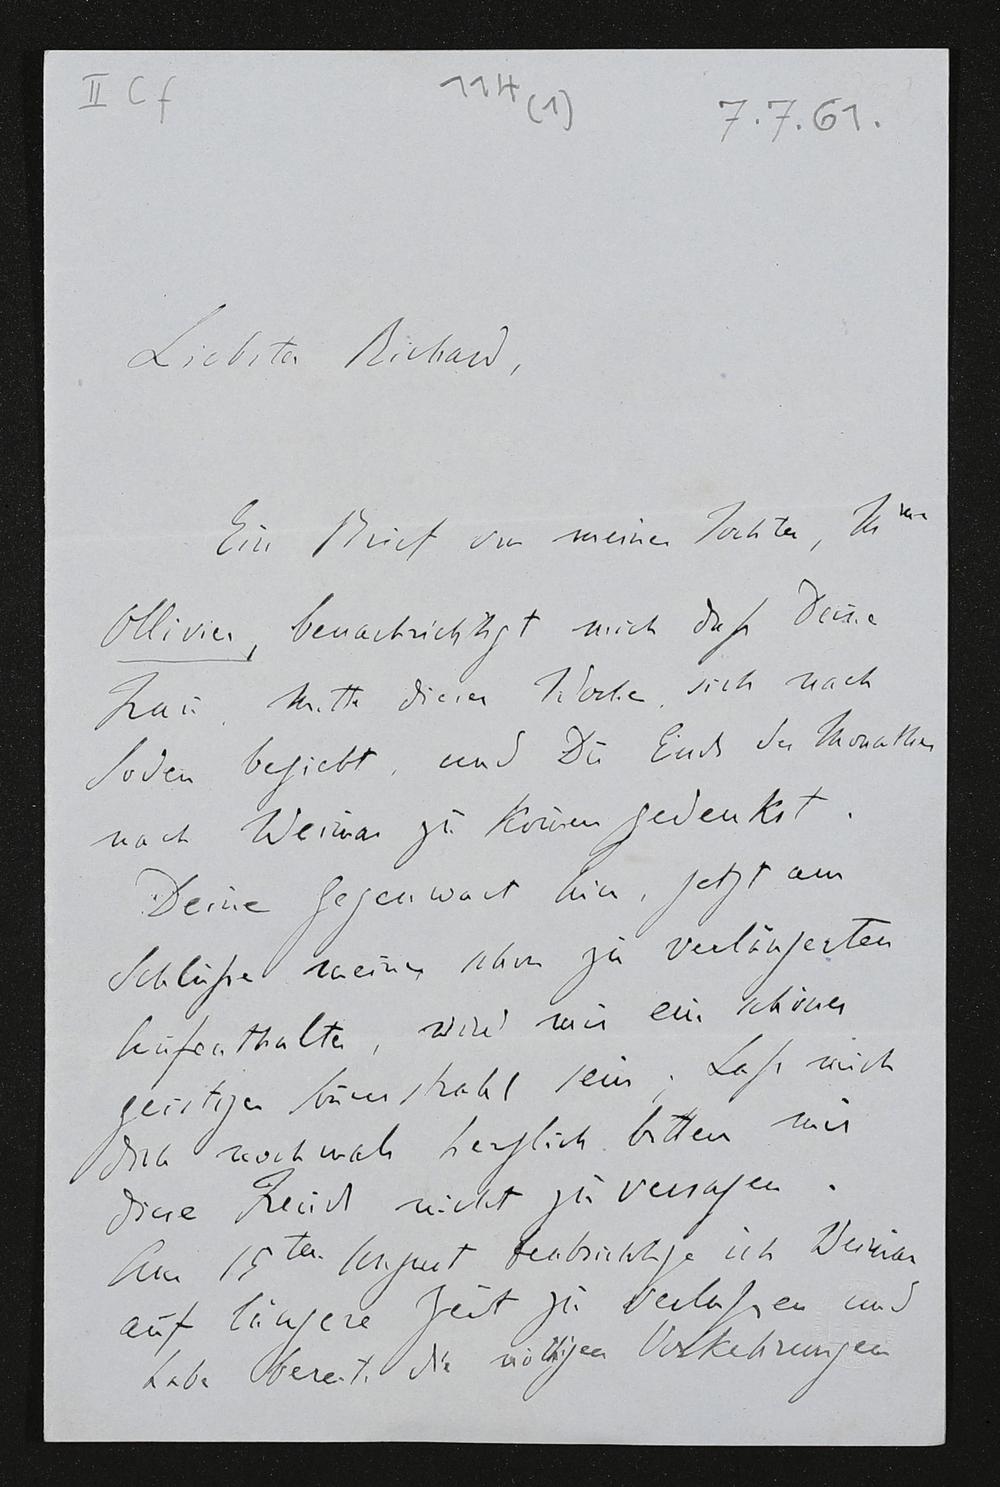 II C f
114 (1)
7.7.61.
Liebster Richard,
Ein Brief von meiner Tochter, Mme
Ollivier, benachrichtigt mich dass Deine
Frau, Mitte dieser Woche, sich nach
Soden begiebt, und Du Ende des Monathes
nach Weimar zu kom̄en gedenkst.
Deine Gegenwart hier, jetzt am
Schlusse meines schon zu verlängerten
Aufenthaltes, wird mir ein schöner
geistiger Son̄enstrahl sein; Lass mich
Dich nochmals herzlich bitten mir
diese Freude nicht zu versagen.
Am 15ten August beabsichtige ich Weimar
auf längere Zeit zu verlassen und
habe bereits die nöthigen Vorkehrungen